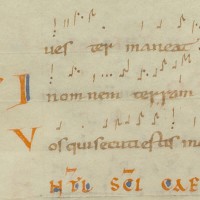 ues ter maneat
I nomnem terram
Vos qui secuti estis me
NTL SCI CAE